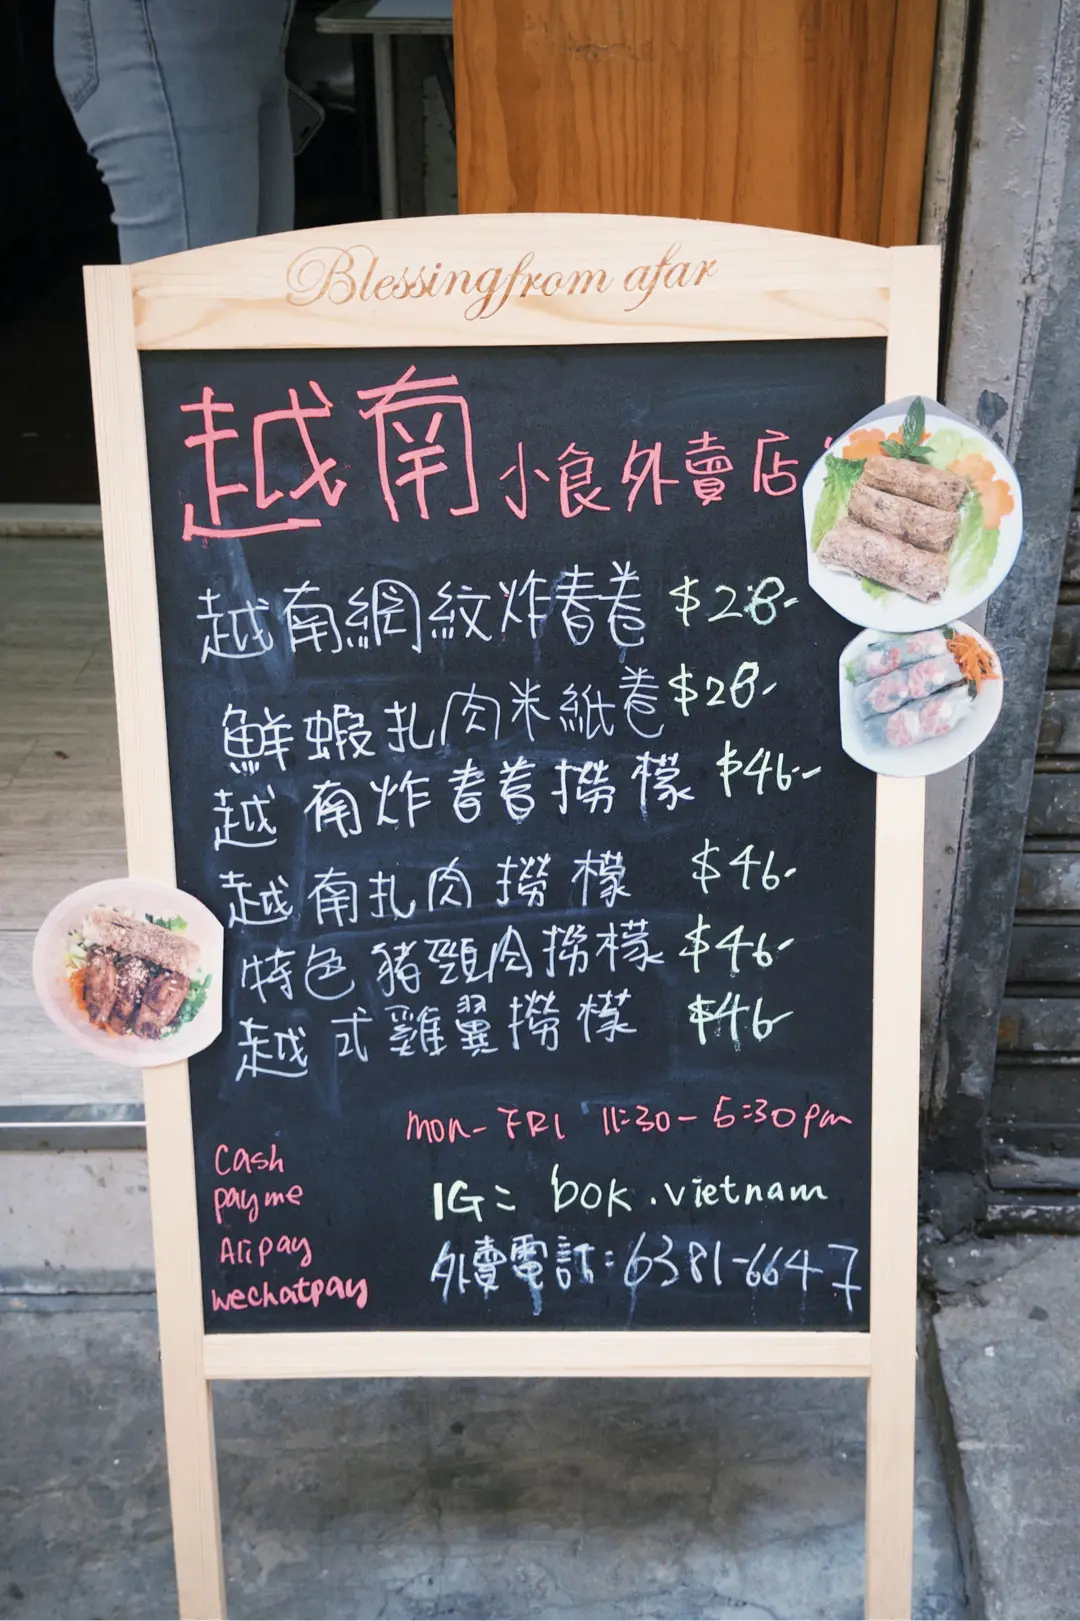 Blessing from afar
越南小食外賣店
越南網紋炸春卷 $28-
鮮蝦扎肉米紙卷 $28-
越南炸春卷撈檬 $46-
越南扎肉撈檬 $46-
特色豬頸肉撈檬 $46-
越式雞翼撈檬 $46-
Mon- FRI 11:30- 5:30pm
Cash
payme
Alipay
wechatpay
IG: bok.vietnam
外賣電話:6381-6647